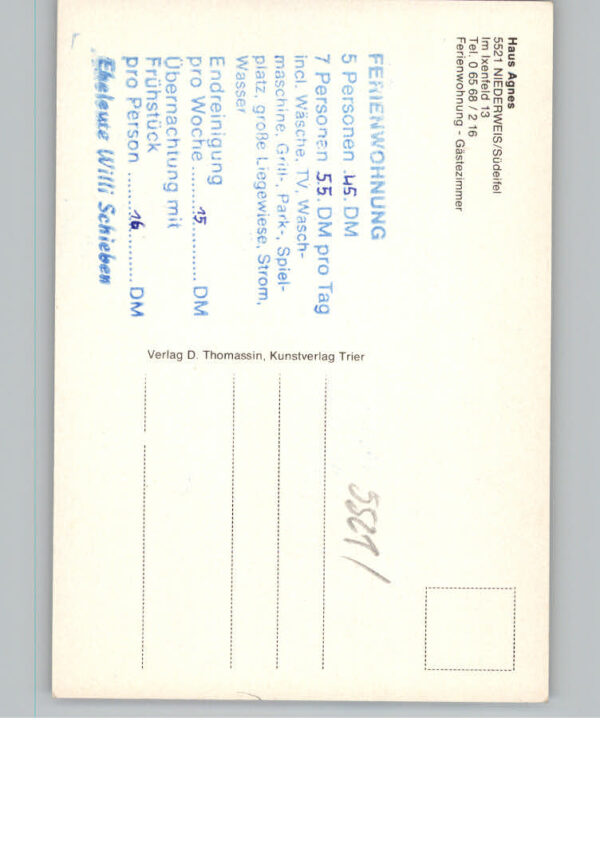 Haus Agnes
5521 NIEDERWEIS/Südeifel
Im Ixenfeld 13
Tel. 0 65 68 / 2 16
Ferienwohnung - Gästezimmer
FERIENWOHNUNG
5 Personen .45. DM
7 Personen 55. DM pro Tag
incl. Wäsche, TV, Wasch-
maschine, Grill-, Park-, Spiel-
platz, große Liegewiese, Strom,
Wasser
Endreinigung
pro Woche.......15.........DM
Übernachtung mit
Frühstück
pro Person ........16.........DM
Eheleute Willi Schieben
Verlag D. Thomassin, Kunstverlag Trier
5521 /